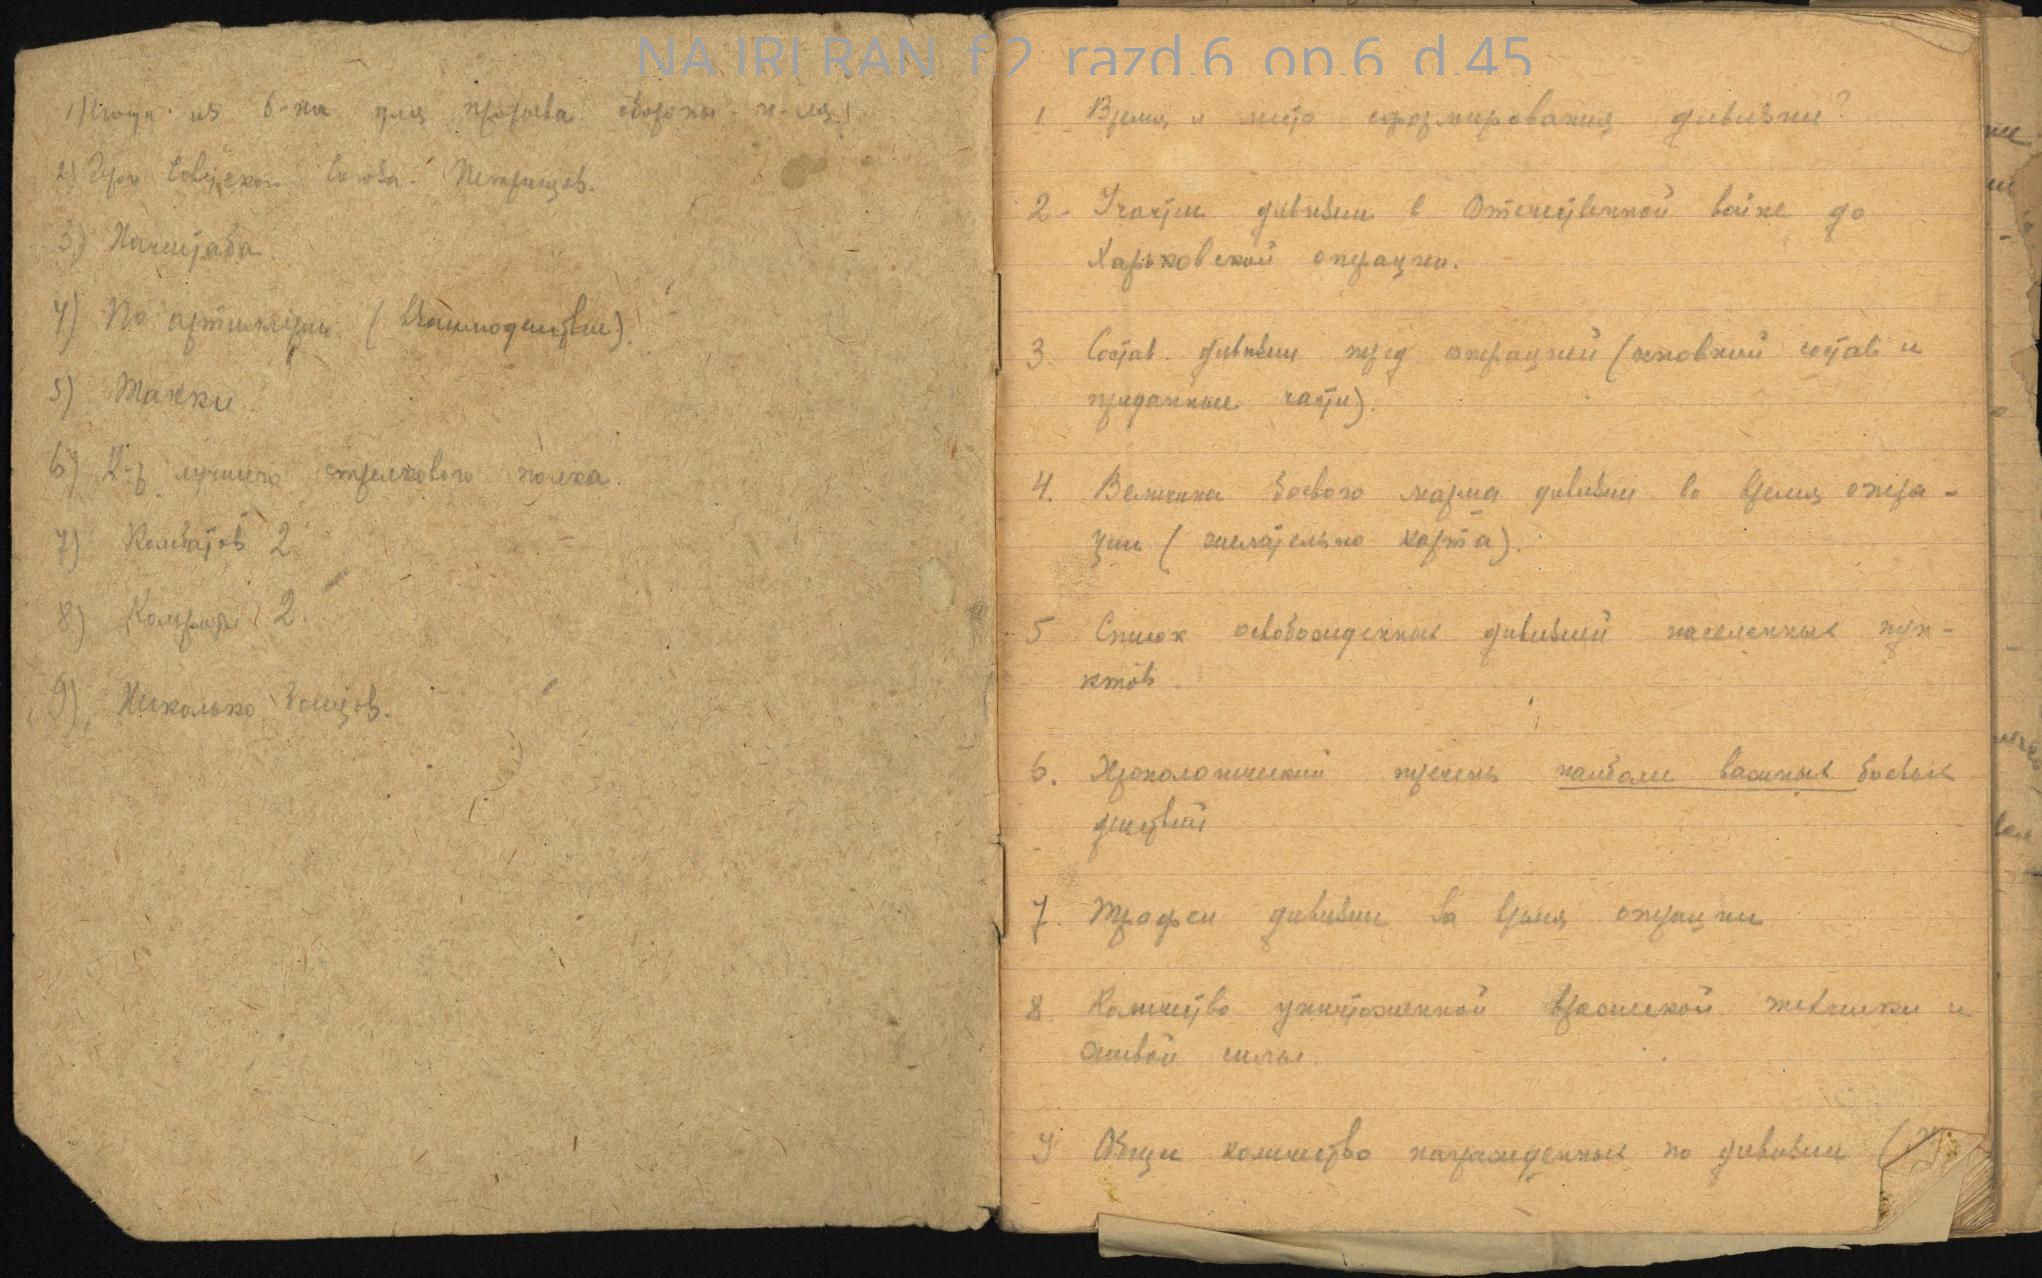 NA IRI RAN f.2 razd.6 op.6 d.45
1) из б-на для прорыва обороны п-ка!
2) Герой Советского Союза. Петрищев.
3) Начштаба
4) По артиллерии (Взаимодействие).
5) Танки.
6) К-р лучшего стрелкового полка.
7) Комбатов 2
8) Комроты 2.
9) Несколько бойцов.
1 Время и место сформирования дивизии?
2 - Участие дивизии в Отечественной войне до
Харьковской операции.
3. Состав дивизии перед операцией (основной состав и
приданные части).
4. Величина боевого марша дивизии во время опера-
ции (желательно карта).
5 Список освобожденных дивизией населенных пун-
ктов.
6. Хронологический перечень наиболее важных боевых
действий
7. Трофеи дивизии за время операции
8. Количество уничтоженной вражеской техники и
живой силы.
9 Общее количество награжденных по дивизии (